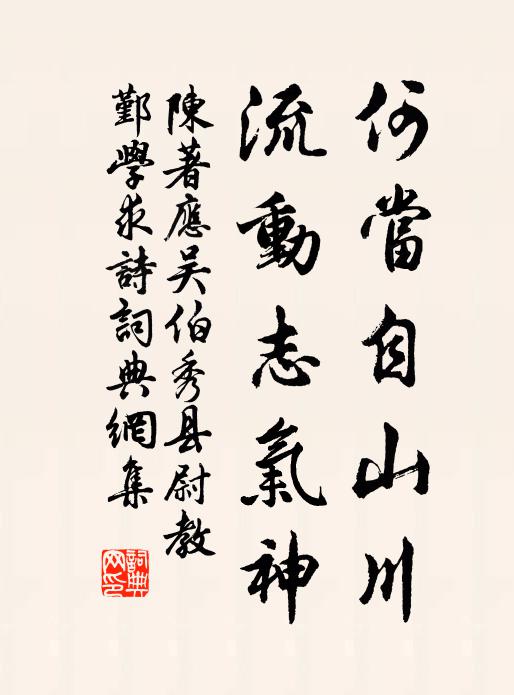 何當自山川
流動志氣神
陳著應吴伯秀县尉教
鄞學求詩詞典網集
詞典
网印